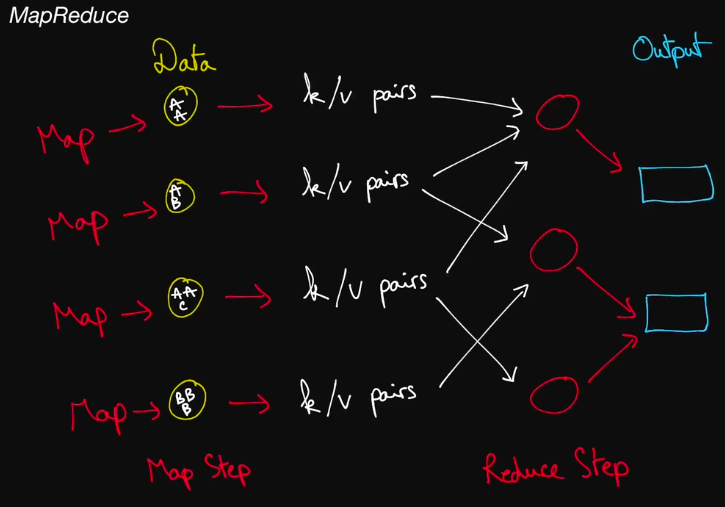 MapReduce
Data
Output
Map
A
A
k/v pairs
Map
A
B
k/v pairs
Map
AA
C
k/v pairs
Map
BB
B
k/v pairs
Map Step
Reduce Step